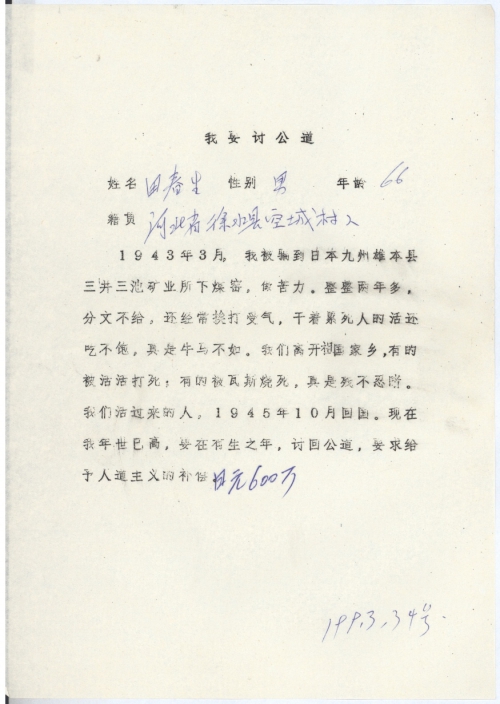 我要讨公道
姓名 田春生 性别 男 年龄 66
籍贯 河北省徐水县空城村人
1943年3月，我被骗到日本九州雄本县
三井三池矿业所下煤窑，做苦力。整整两年多，
分文不给，还经常挨打受气，干着累死人的活还
吃不饱，真是牛马不如。我们离开祖国家乡，有的
被活活打死；有的被瓦斯烧死，真是残不忍睹。
我们活过来的人，1945年10月回国。现在
我年世已高，要在有生之年，讨回公道，要求给
予人道主义的补偿日元600万